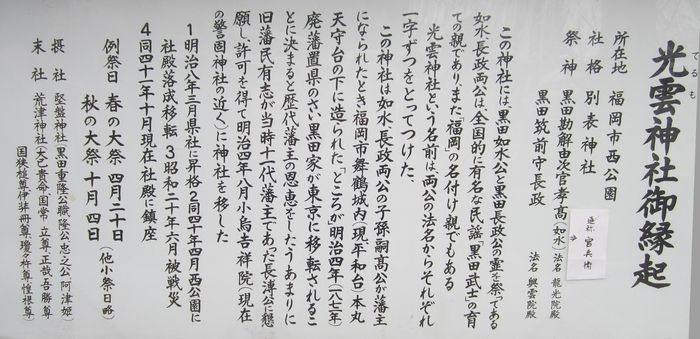 光雲神社御縁起
てるも
所在地 福岡市西公園
社格 別表神社
祭神 黒田勘解由次官孝高(如水) 法名 龍光院殿
通称 官兵衛
黒田筑前守長政 法名 興雲院殿
この神社には、黒田如水公と黒田長政公の霊を祭ってある
如水長政両公は、全国的に有名な民謡「黒田武士」の育
ての親であり、また「福岡」の名付け親でもある
光雲神社という名前は、両公の法名からそれぞれ
一字ずつをとってつけた、
この神社は如水長政両公の子孫嗣高公が藩主
になられたとき福岡市舞鶴城内(現平和台)本丸
天守台の下に造られた、ところが明治四年(一八七一年)
廃藩置県のさい黒田家が東京に移転されるこ
とに決まると歴代藩主の恩恵をしたうあまりに
旧藩民有志が当時十一代藩主であった長溥公に懇
願し、許可を得て明治四年八月小烏吉祥院(現在
の警固神社の近く)に神社を移した
1 明治八年三月県社に昇格 2 同四十年四月西公園に
社殿落成移転 3 昭和二十年六月被戦災
4 同四十一年十月現在社殿に鎮座
例祭日 春の大祭 四月二十日 (他小祭日略)
秋の大祭 十月四日
摂社 堅盤神社(黒田重隆公職隆公忠之公 阿津姫)
末社 荒津神社(大己貴命国常立尊正哉吾勝尊
国狭槌尊伊弉冊尊瓊々杵尊惶根尊)